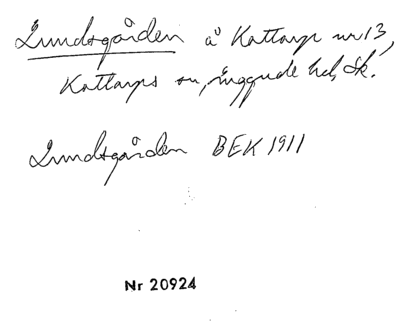 Lundsgården å Kattarp nr 13,
Kattarps sn, Luggude hd, Sk.
Lundsgården BEK 1911
Nr 20924